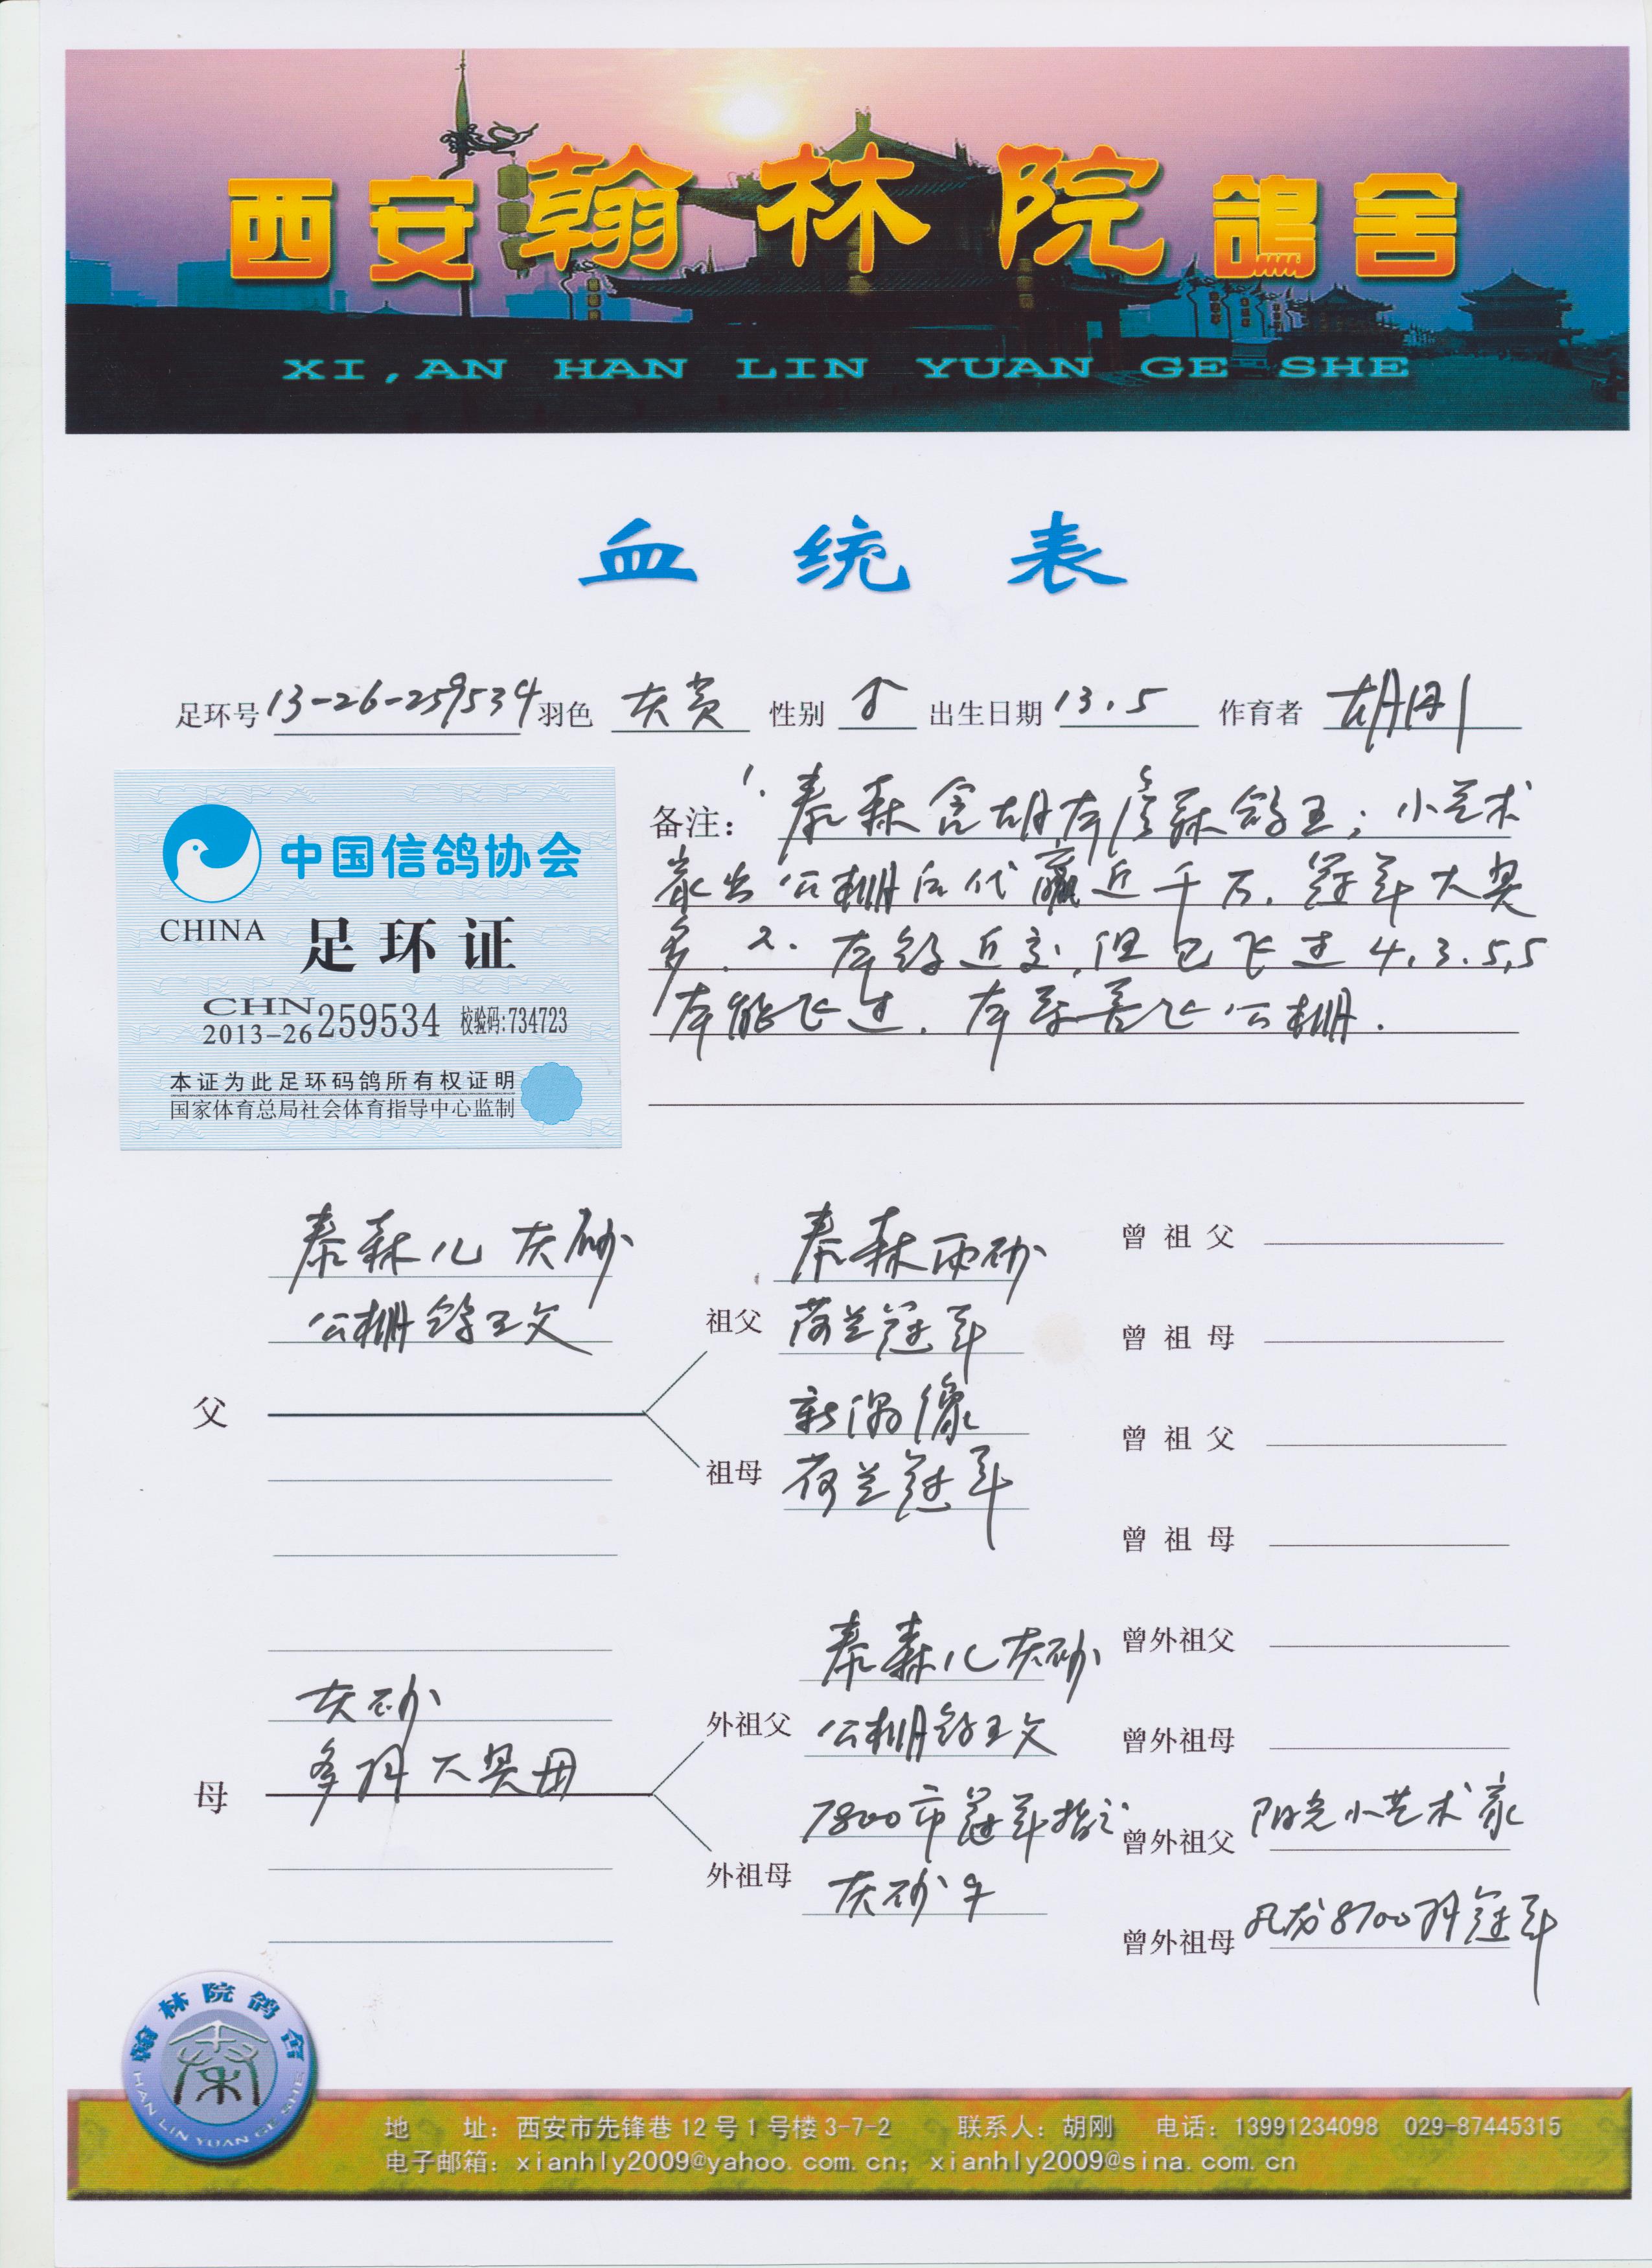 西安翰林院鴿舍
XI,AN HAN LIN YUAN GE SHE
血统表
足环号 13-26-259534 羽色 灰 性别 ♂ 出生日期 13.5 作育者 胡刚
中国信鸽协会
CHINA 足环证
CHN
2013-26 259534 校验码:734723
本证为此足环码鸽所有权证明
国家体育总局社会体育指导中心监制
备注: 1. 泰森含胡本 鸽王; 小艺术
家出公棚后代赢近千万. 冠军大奖
多. 2. 本鸽近交, 但已飞过4.3.5.5
本能飞过. 本系善飞公棚.
父
泰森儿 灰砂
公棚鸽王父
祖父
泰森雨砂
荷兰冠军
祖母
新偶像
荷兰冠军
曾祖父
曾祖母
曾祖父
曾祖母
母
灰砂
多 大奖母
外祖父
泰森儿灰砂
公棚鸽王父
外祖母
7800 冠军
灰砂♀
曾外祖父
曾外祖母
曾外祖父 阳光小艺术家
曾外祖母 凡龙8700 冠军
翰林院鸽舍
HAN LIN YUAN GE SHE
地 址: 西安市先锋巷12号1号楼3-7-2 联系人: 胡刚 电话: 13991234098 029-87445315
电子邮箱: xianhly2009@yahoo.com.cn; xianhly2009@sina.com.cn